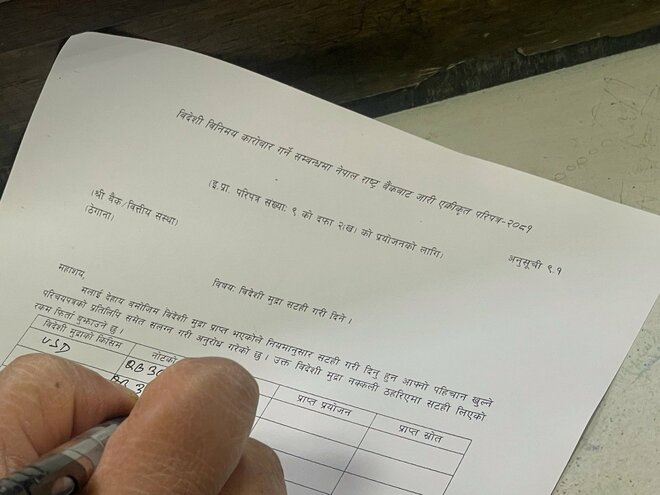 विदेशी विनिमय कारोवार गर्ने सम्बन्धमा नेपाल राष्ट्र बैंकबाट जारी एकीकृत परिपत्र-२०८१
(इ.प्रा. परिपत्र सख्या: ९ को दफा २(ख) को प्रयोजनको लागि)
अनुसूची ९.१
(श्री बैंक/वित्तीय सस्था)
(ठेगाना)
विषय: विदेशी मुद्रा सटही गरी दिने ।
महाशय,
मलाई देहाय वमोजिम विदेशी मुद्रा प्राप्त भएकोले नियमानुसार सटही गरी दिनु हुन आफ्नो पहिचान खुल्ने
परिचयपत्रको प्रतिलिपि समेत सलग्न गरी अनुरोध गरेको छु । उक्त विदेशी मुद्रा नक्कली ठहरिएमा सटही लिएको
रकम फिर्ता बुझाउने छु ।
विदेशी मुद्राको किसिम नोटको प्राप्त प्रयोजन प्राप्त स्रोत
USD